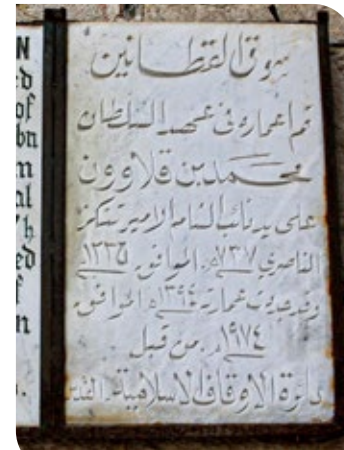 سوق القطانين
تم اعماره في عهد السلطان
محمد بن قلاوون
على يد نائب الشام الامير تنكز
الناصري ٧٣٧هـ. الموافق
وقد جددت عمارته ١٣٩٤ه الموافق
١٩٧٤م. من قبل
دائرة الاوقاف الاسلامية. القدس